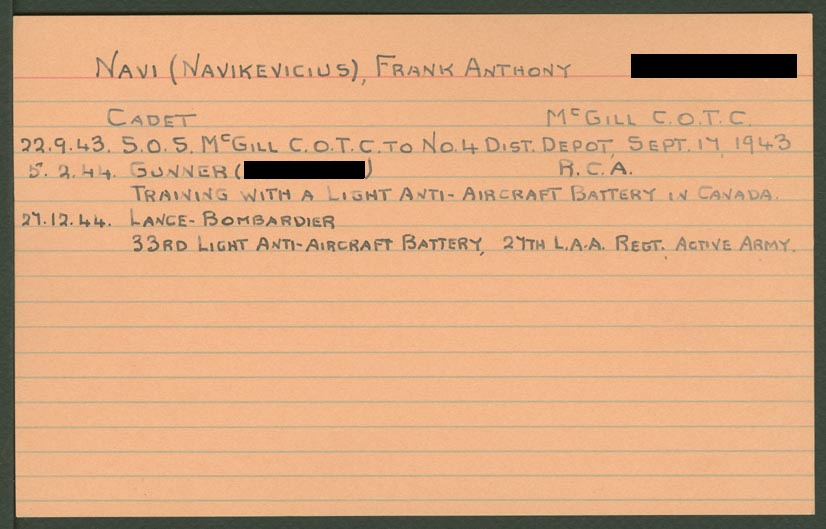 NAVI (NAVIKEVICIUS), FRANK ANTHONY
CADET McGILL C.O.T.C.
22.9.43. S.O.S. McGILL C.O.T.C. TO No.4 DIST. DEPOT, SEPT. 17, 1943
5.2.44. GUNNER ( ) R.C.A.
TRAINING WITH A LIGHT ANTI-AIRCRAFT BATTERY IN CANADA.
27.12.44. LANCE-BOMBARDIER
33RD LIGHT ANTI-AIRCRAFT BATTERY, 27TH L.A.A. REGT. ACTIVE ARMY.